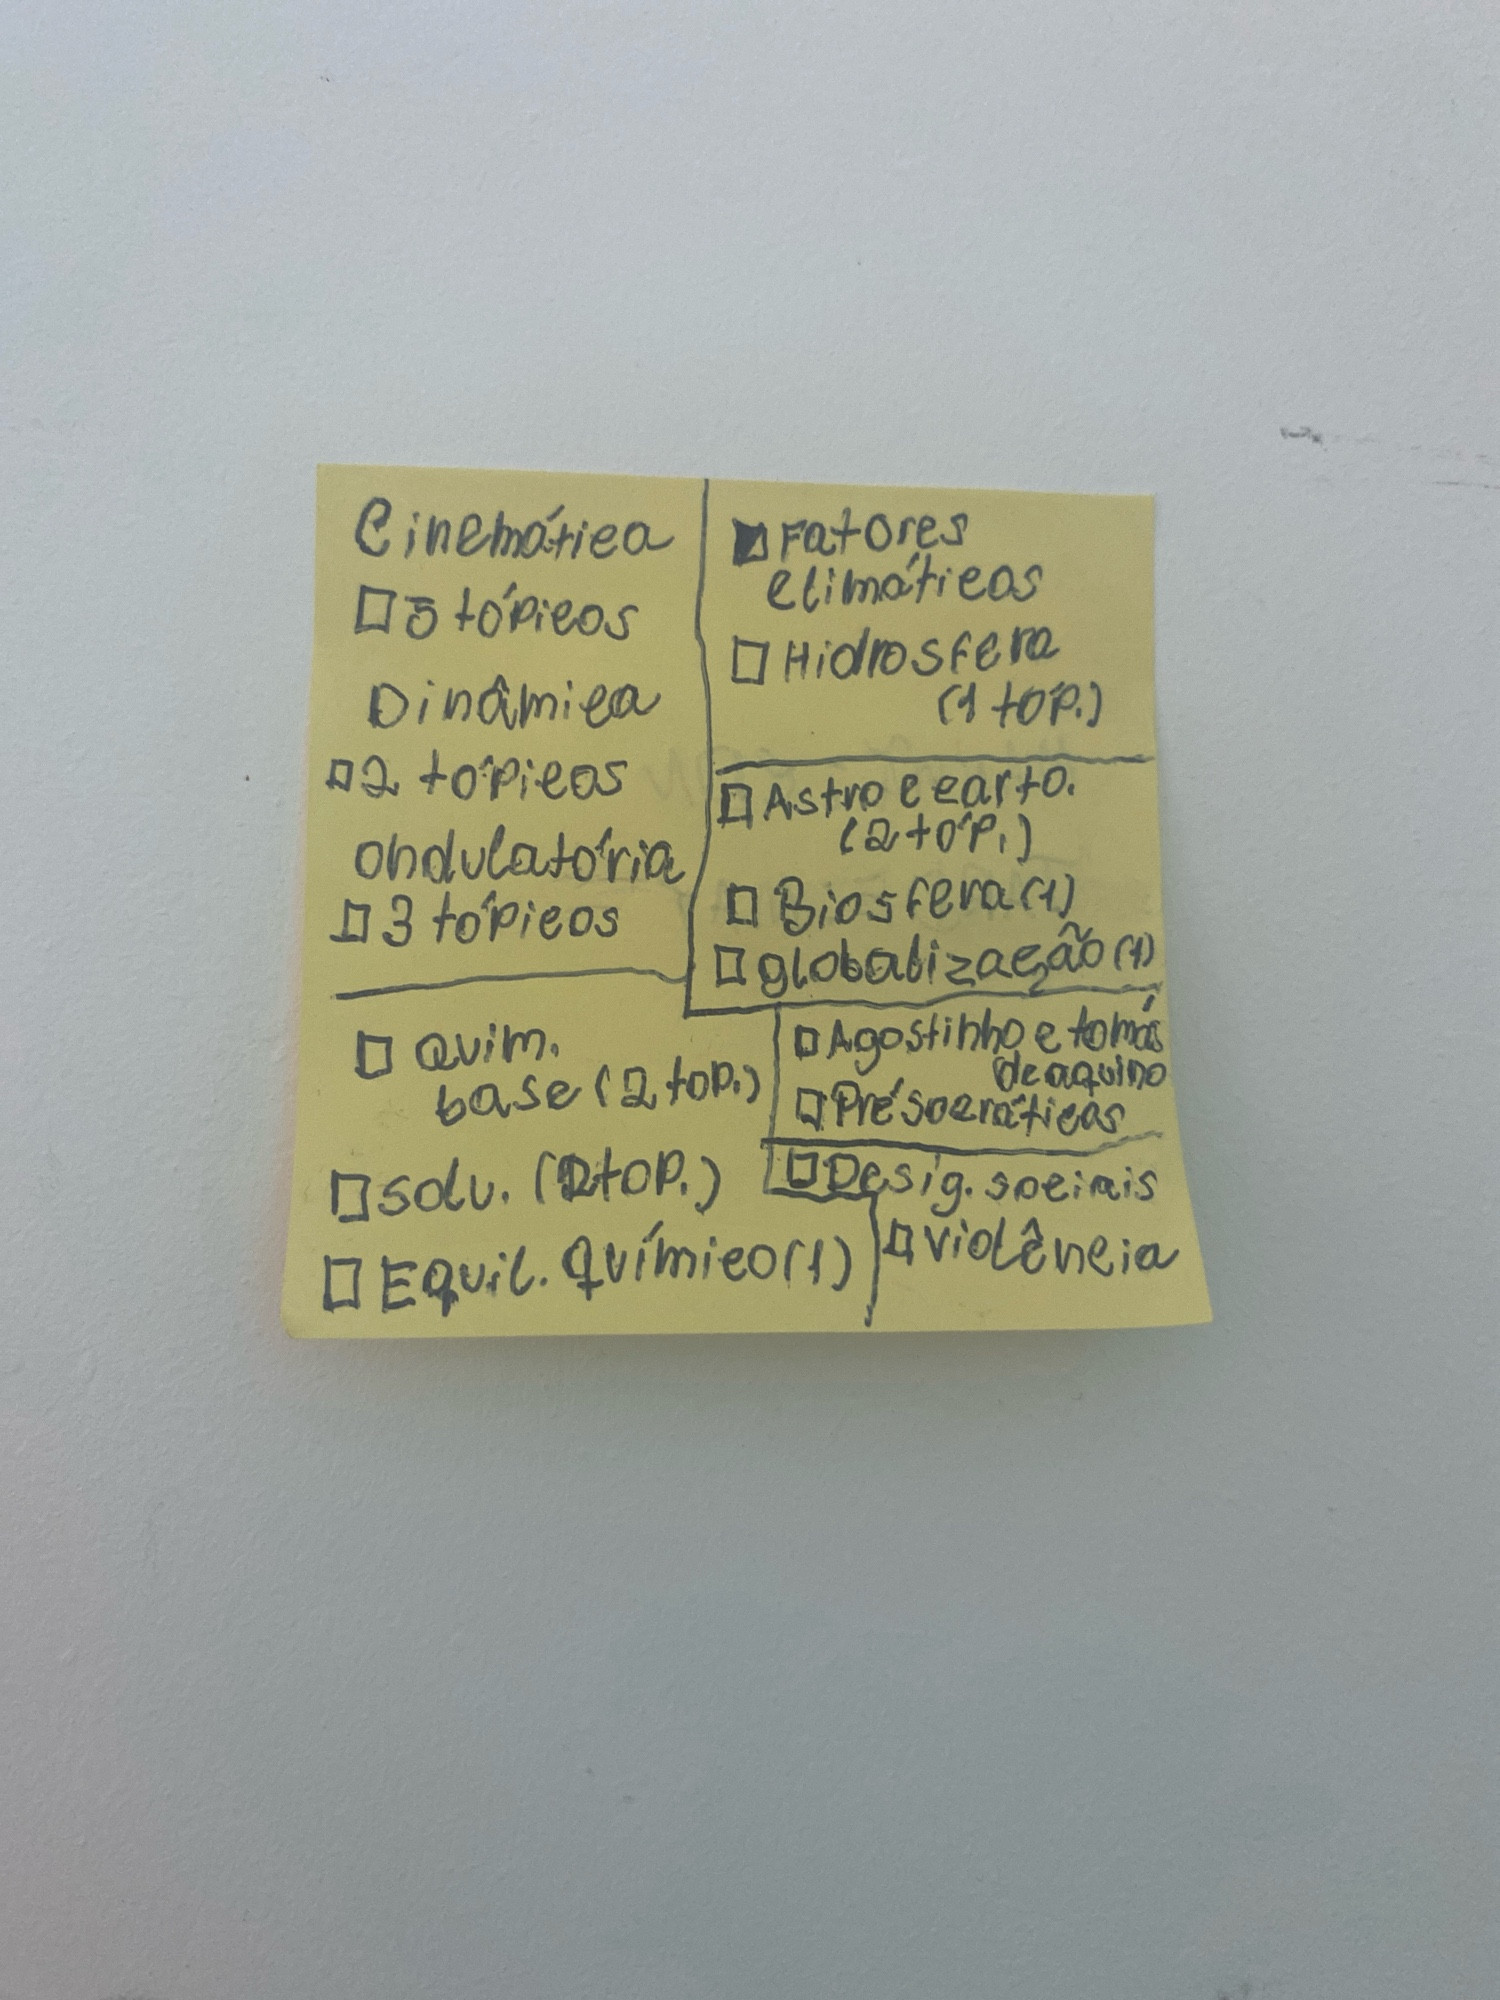 Cinemática
5 tópicos
Dinâmica
2 tópicos
ondulatória
3 tópicos
Quim.
base (2 top.)
solu. (2 top.)
Equil. químico (1)
Fatores
climáticos
Hidrosfera
(1 tóp.)
Astro e carto.
(2 tóp.)
Biosfera (1)
globalização (1)
Agostinho e tomás
de aquino
Présocráticos
Desig. sociais
violência